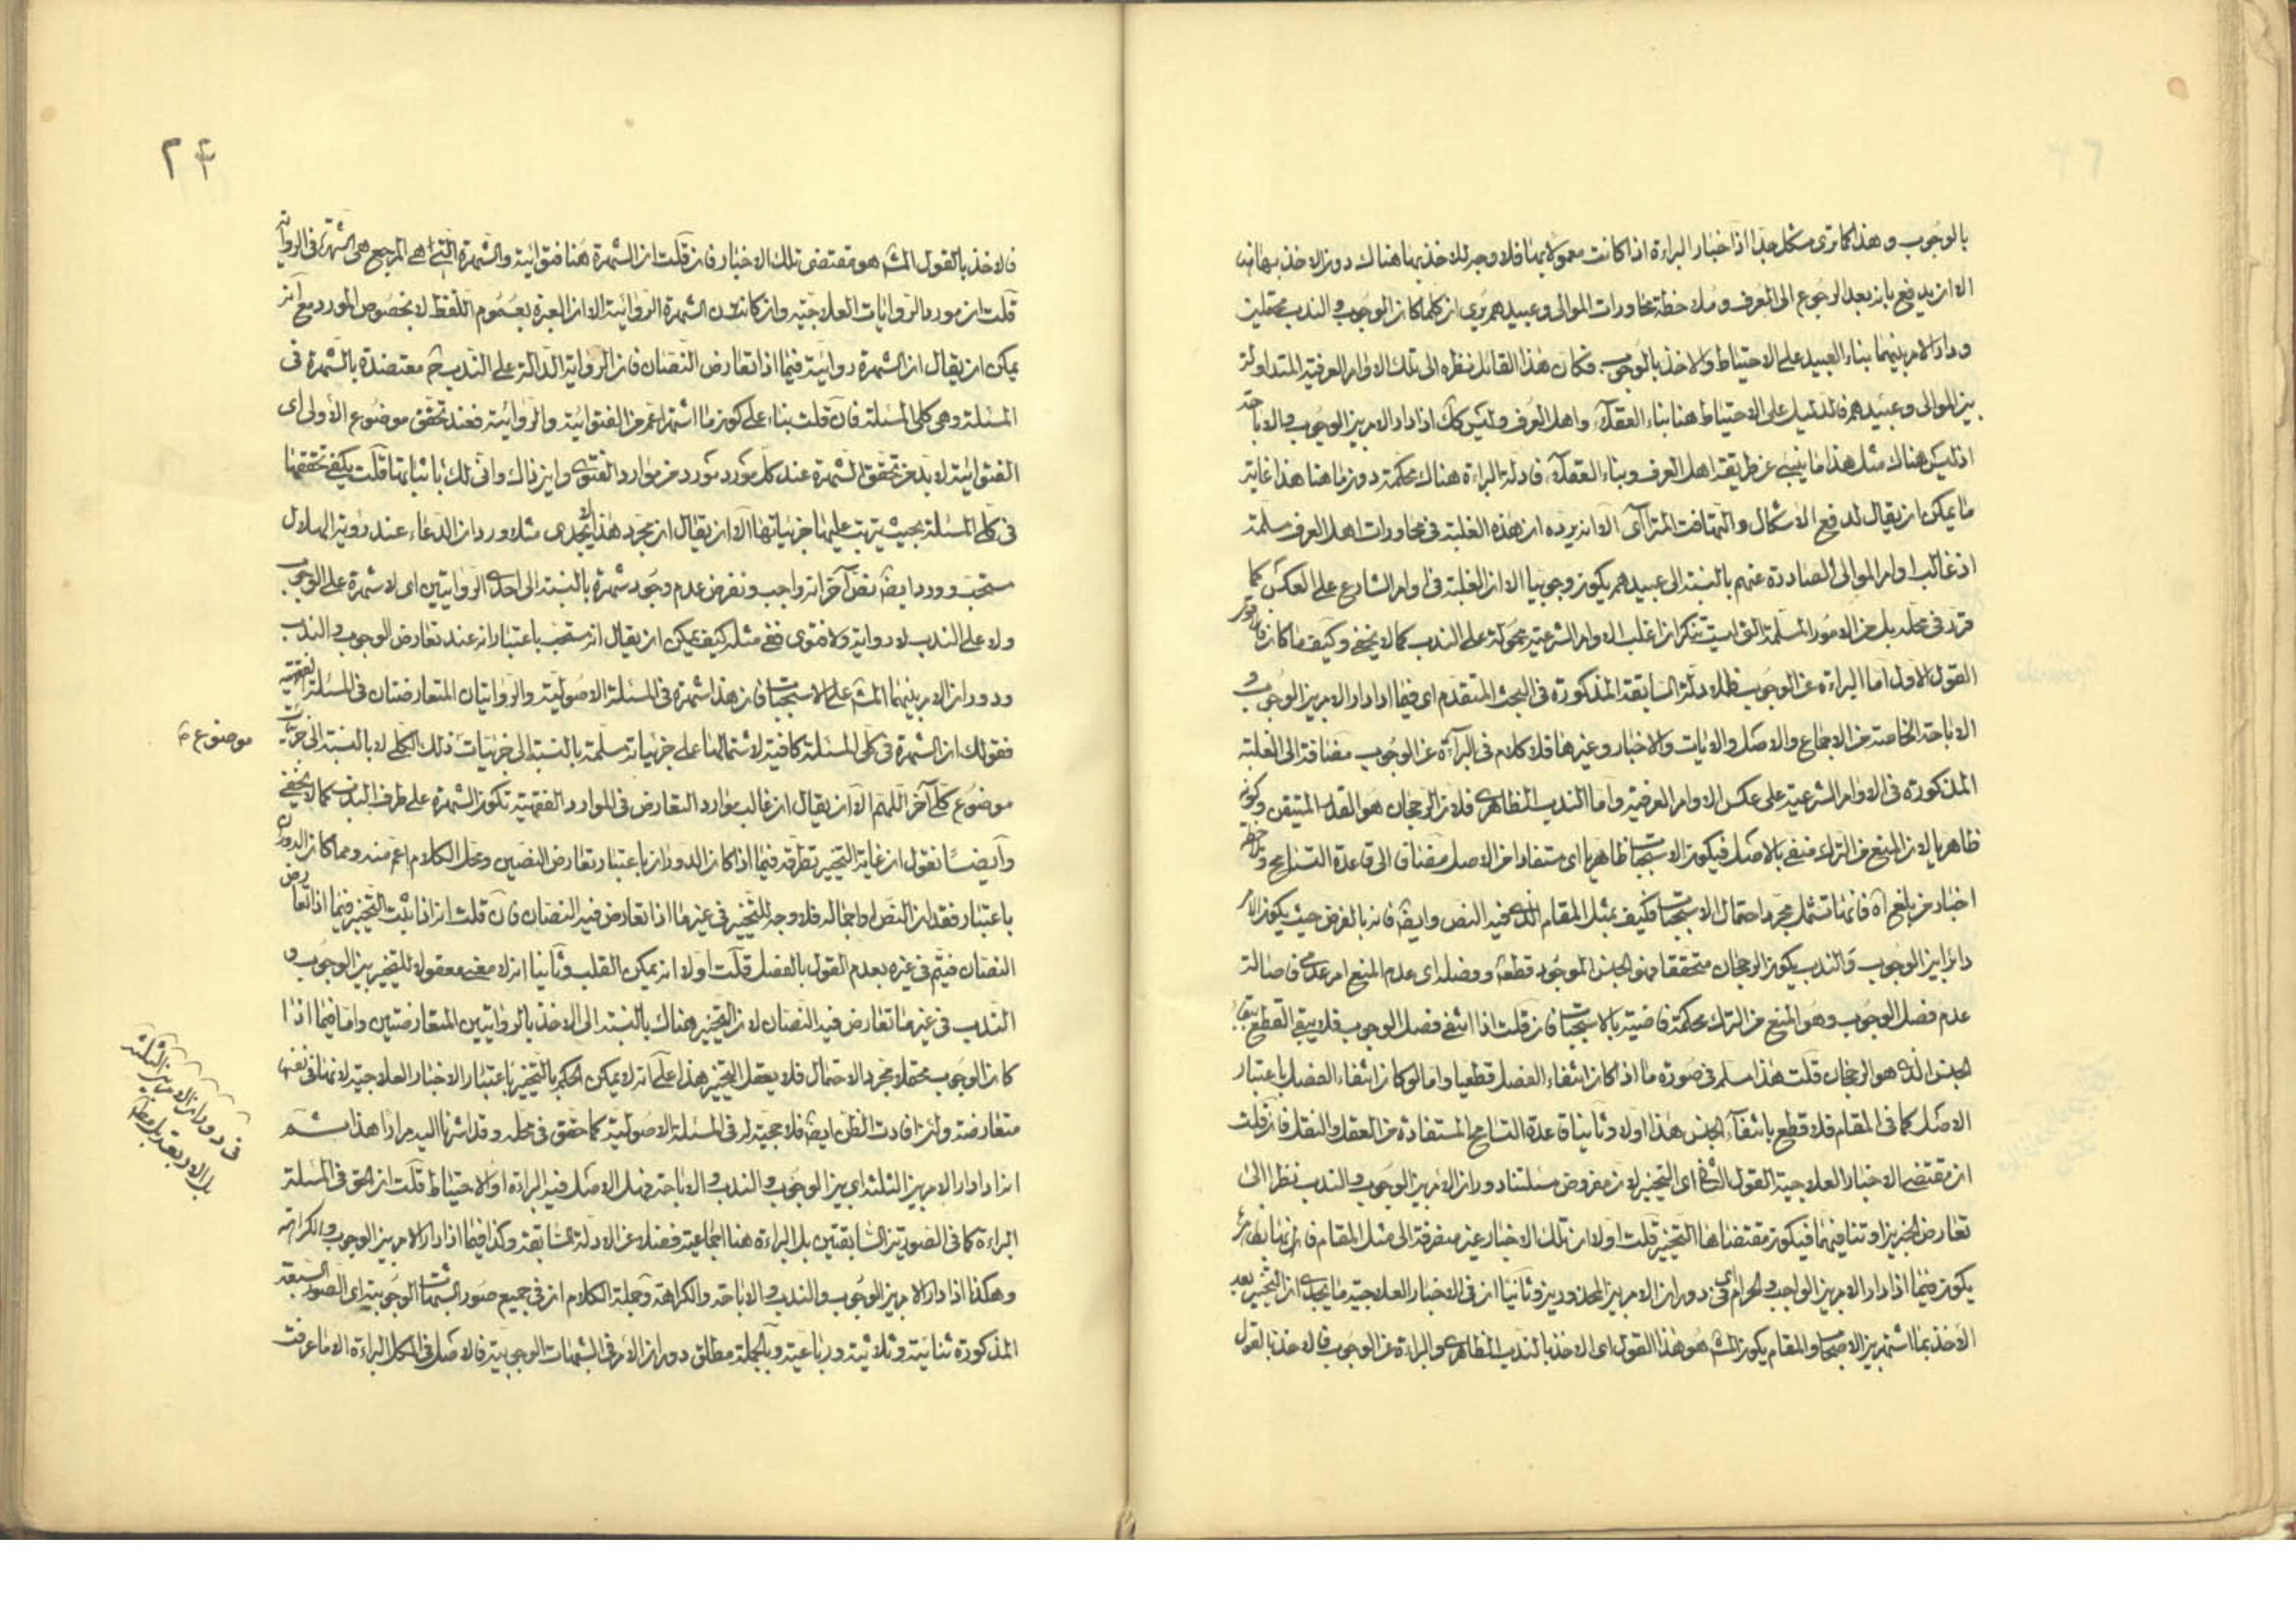 بالوجوب وهذا كما ترى مشكل جدا اذ اخبار البراءة اذا كانت معمولا بها فلا وجه للاخذ بها هناك دون الاخذ بها هنا
الا ان يدفع بانه بعد الرجوع الى العرف وملاحظة محاورات الموالى وعبيدهم نرى ان كلما كان الوجوب والندب محتملين
ودار الامر بينهما بناء العبيد على الاحتياط والاخذ بالوجوب فكان هذا القائل نظره الى تلك الاوامر العرفية المتداولة
بين الموالى وعبيدهم فالدليل على الاحتياط هنا بناء العقلاء واهل العرف وليس كك اذا دار الامر بين الوجوب والاباحة
اذ ليس هناك مثل هذا ما ينبئ عن طريقة اهل العرف وبناء العقلاء فادلة البراءة هناك محكمة دون ما هنا هذا غاية
ما يمكن ان يقال لدفع الاشكال والتهافت المترائى الا انه يرده ان هذه الغلبة فى محاورات اهل العرف مسلمة
اذ غالب اوامر الموالى الصادرة عنهم بالنسبة الى عبيدهم يكون وجوبيا الا ان الغلبة فى اوامر الشارع على العكس كما
قرر فى محله بل من الامور المسلمة التى ليست تنكر ان اغلب الاوامر الشرعية محمولة على الندب كما لا يخفى وكيف ما كان فالاقوى
القول الاول اما البراءة عن الوجوب فللادلة السابقة المذكورة فى البحث المتقدم اى فيما اذا دار الامر بين الوجوب و
الاباحة الخاصة من الاجماع والاصل والايات والاخبار وغيرها فلا كلام فى البراءة عن الوجوب مضافة الى الغلبة
المذكورة فى الاوامر الشرعية على عكس الاوامر العرفية واما الندب الظاهرى فلان الرجحان هو القدر المتيقن وكونه
ظاهريا لان المنع من الترك منفى بالاصل فيكون الاستحباب ظاهريا اى مستفادا من الاصل مضاف الى قاعدة التسامح و
اخبار من بلغ اه فانها تشمل مجرد احتمال الاستحباب فكيف بمثل المقام الذى فيه النص وايضا فانه بالفرض حيث يكون الامر
دائرا بين الوجوب والندب يكون الرجحان متحققا فهو الجنس الموجود قطعا وفصله اى عدم المنع امر عدمى فاصالة
عدم فصل الوجوب وهو المنع من الترك محكمة قاضية بالاستحباب فان قلت اذا انتفى فصل الوجوب فلا يبقى القطع ببقاء
الجنس الذى هو الرجحان قلت هذا مسلم فى صورة ما اذا كان انتفاء الفصل قطعيا واما لو كان انتفاء الفصل باعتبار
الاصل كما فى المقام فلا قطع بانتفاء الجنس هذا اولا وثانيا قاعدة التسامح المستفادة من العقل والنقل فان قلت
ان مقتضى الاخبار العلاجية القول الثانى اى التخيير لان مفروض مسئلتنا دوران الامر بين الوجوب والندب نظرا الى
تعارض الخبرين وتنافيهما فيكون مقتضاها التخيير قلت اولا ان تلك الاخبار غير منصرفة الى مثل المقام فانها
يكون فيما اذا دار الامر بين الواجب والحرام اى فى دوران الامر بين المحذورين وثانيا ان فى الاخبار العلاجية ما يجدى ان التخيير بعد
الاخذ بما اشتهر بين الاصحاب والمقام يكون المش هو هذا القول اى الاخذ بالندب الظاهرى والبراءة عن الوجوب فالاخذ بالقول
٢٤
فالاخذ بالقول المش هو مقتضى تلك الاخبار فان قلت ان الشهرة هنا فتوائية والشهرة التى هى المرجع هى الشهرة فى الرواية
قلت ان مورد الروايات العلاجية وان كانت الشهرة الروائية الا ان العبرة بعموم اللفظ لا بخصوص المورد مع انه
يمكن ان يقال ان الشهرة روائية فيما اذا تعارض النصان فان الرواية الدالة على الندب ح معتضدة بالشهرة فى
المسئلة وهى كلى المسئلة فان قلت بناء على كون ما اشتهر اعم من الفتوائية والروائية فعند تحقق موضوع الاولى اى
الفتوائية لابد من تحقق الشهرة عند كل مورد مورد من موارد الفتوى واين ذاك وانى لك باثباتها قلت يكفى تحققها
فى كلى المسئلة بحيث يترتب عليها جزئياتها الا ان يقال ان مجرد هذا لا يجدى مثلا ورد ان الدعاء عند رؤية الهلال
مستحب وورد ايضا نص آخر انه واجب ونفرض عدم وجود شهرة بالنسبة الى احدى الروايتين اى لا شهرة على الوجوب
ولا على الندب لا رواية ولا فتوى ففى مثله كيف يمكن ان يقال انه مستحب باعتبار انه عند تعارض الوجوب والندب
ودوران الامر بينهما المش على الاستحباب فان هذا شهرة فى المسئلة الاصولية والروايتان المتعارضتان فى المسئلة الفقهية
فقولك ان الشهرة فى كلى المسئلة كافية لاشتمالها على جزئياته مسلمة بالنسبة الى جزئيات ذلك الكلى لا بالنسبة الى جزئيات
موضوع ح
موضوع كلى آخر اللهم الا ان يقال ان غالب موارد التعارض فى الموارد الفقهية تكون الشهرة على طرف الندب كما لا يخفى
وايضا نقول ان غاية التخيير تطرقه فيما اذا كان الدوران باعتبار تعارض النصين ومحل الكلام اعم منه ومما كان الدوران
باعتبار فقدان النص او اجماله فلا وجه للتخيير فى غير ما اذا تعارض فيه النصان فان قلت انه اذا ثبت التخيير فيما اذا تعارض
النصان فيتم فى غيره بعدم القول بالفصل قلت اولا انه يمكن القلب وثانيا انه لا معنى معقولا للتخيير بين الوجوب و
الندب فى غير ما تعارض فيه النصان لان التخيير هناك بالنسبة الى الاخذ بالروايتين المتعارضتين واما فيما اذا
كان الوجوب محتملا بمجرد الاحتمال فلا يعقل التخيير هذا على انه لا يمكن الحكم بالتخيير باعتبار الاخبار العلاجية لانها فى نفسها
متعارضة ولئن افادت الظن ايضا فلا حجية له فى المسئلة الاصولية كما حقق فى محله وقد اشرنا اليه مرارا هذا ثم
انه اذا دار الامر بين الثلثة اى بين الوجوب والندب والاباحة فهل الاصل فيه البراءة او الاحتياط قلت ان الحق فى المسئلة
فى دوران الامر بين الثلثة
بل الاربعة بل مطلقا
البراءة كما فى الصورتين السابقتين بل البراءة هنا اجماعية فضلا عن الادلة السابقة وكذا فيما اذا دار الامر بين الوجوب والكراهة
وهكذا اذا دار الامر بين الوجوب والندب والاباحة والكراهة وجملة الكلام ان فى جميع صور الشبهات الوجوبية اى الصور السبعة
المذكورة ثنائية وثلاثية ورباعية وبالجملة مطلق دوران الامر فى الشبهات الوجوبية فالاصل فى الكل البراءة الا ما عرفت